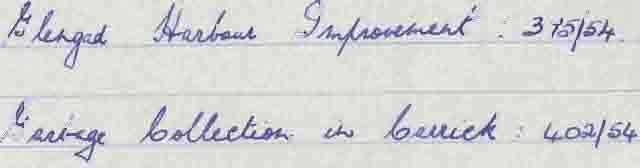 Glengad Harbour Improvement : 375/54.
Garbage Collection in Carrick : 402/54